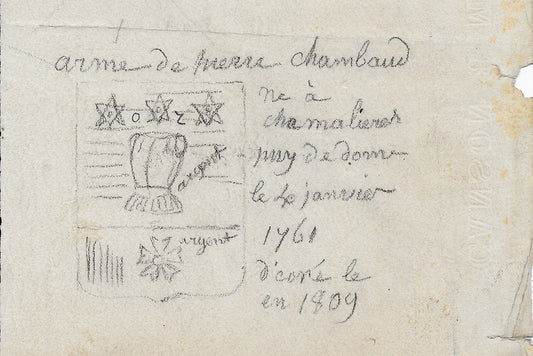 armé de pierre chambaud
o r
argent
argent
ne à
chamalieres
puy de dome
le 40 janvier
1761
d'coré le
en 1809